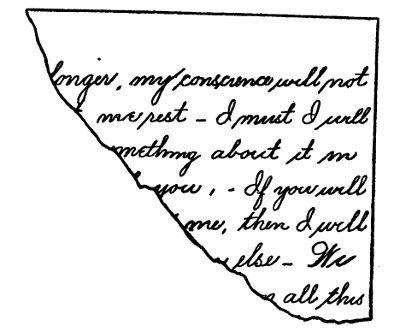 longer, my conscience will not
me rest - I must I will
mething about it in
you, - If you will
me, then I will
else - We
all this